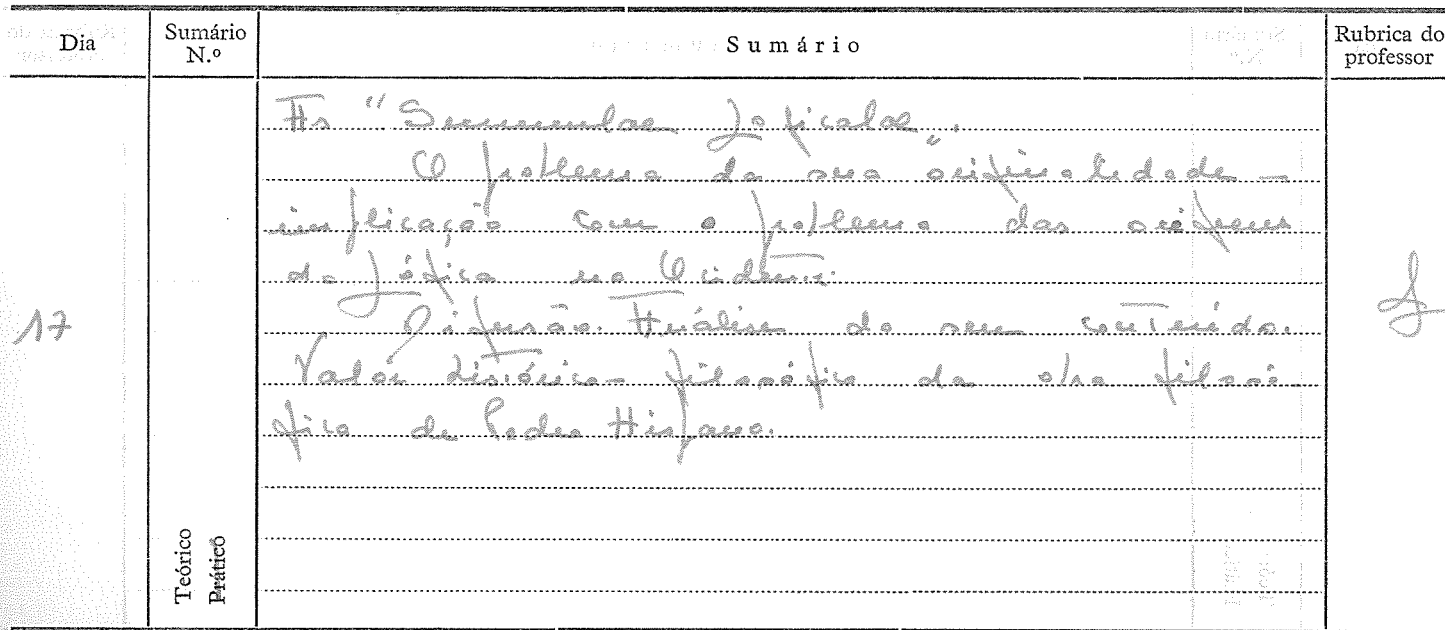 Dia
Sumário
N.º
Sumário
Rubrica do
professor
As "Summulae Logicales".
O problema da sua originalidade –
implicação com o problema das origens
da Lógica no Ocidente.
17
Difusão. Análise do seu conteúdo.
Valor histórico-filosófico da obra filosó-
fica de Pedro Hispano.
Teórico
Prático